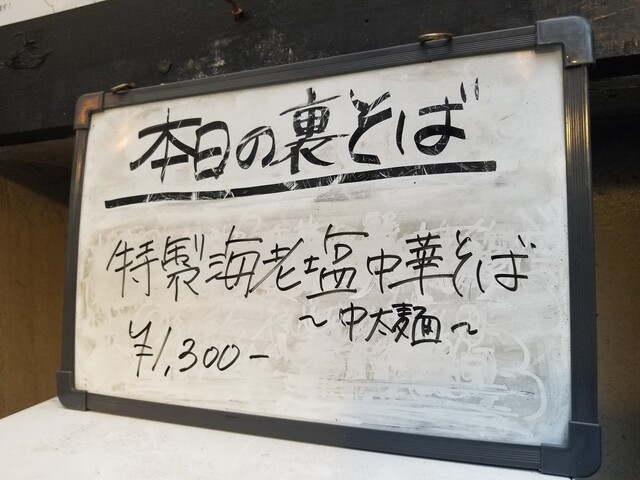 本日の裏そば
特製海老塩中華そば
～中太麺～
¥1,300-